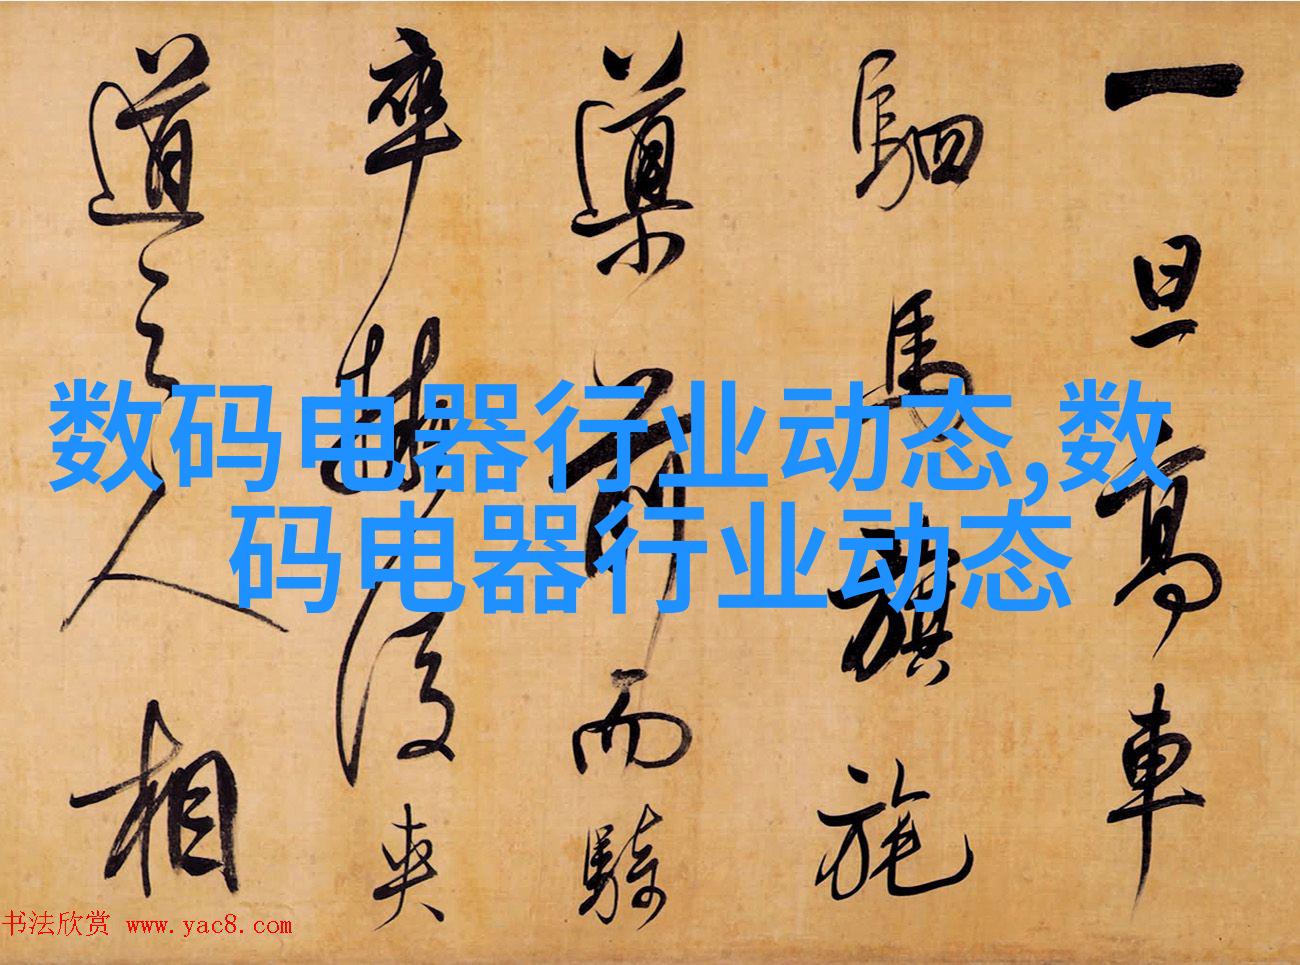 一旦高車
駟馬旗旄
導前而騎
卒擁後夾
道之人相
数码电器行业动态,数
码电器行业动态
书法欣赏 www.yac8.com